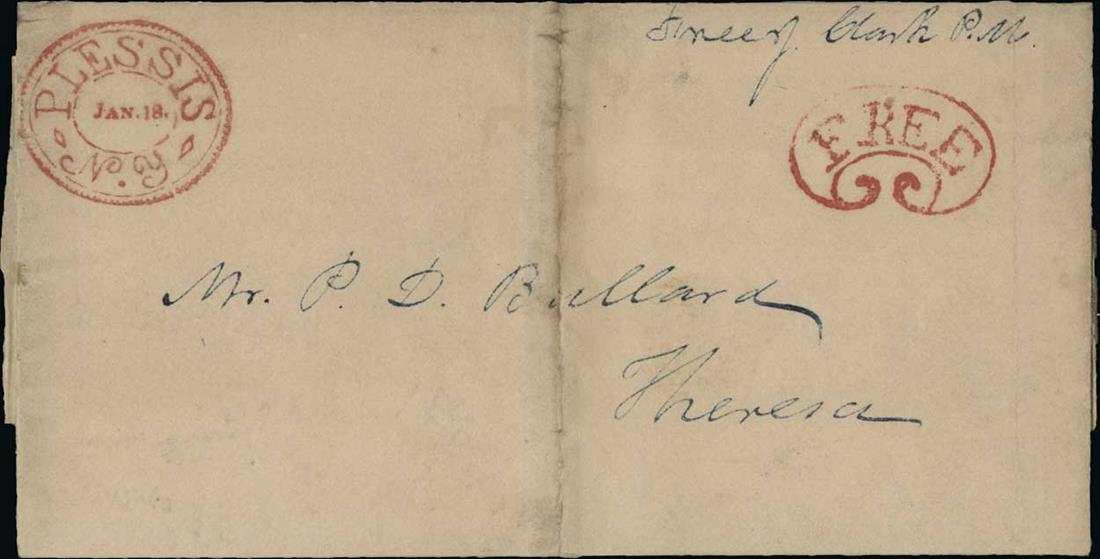 Free J. Clark P.M.
PLESSIS
JAN. 18.
N.Y
FREE
Mr. P. D. Bullard
Theresa